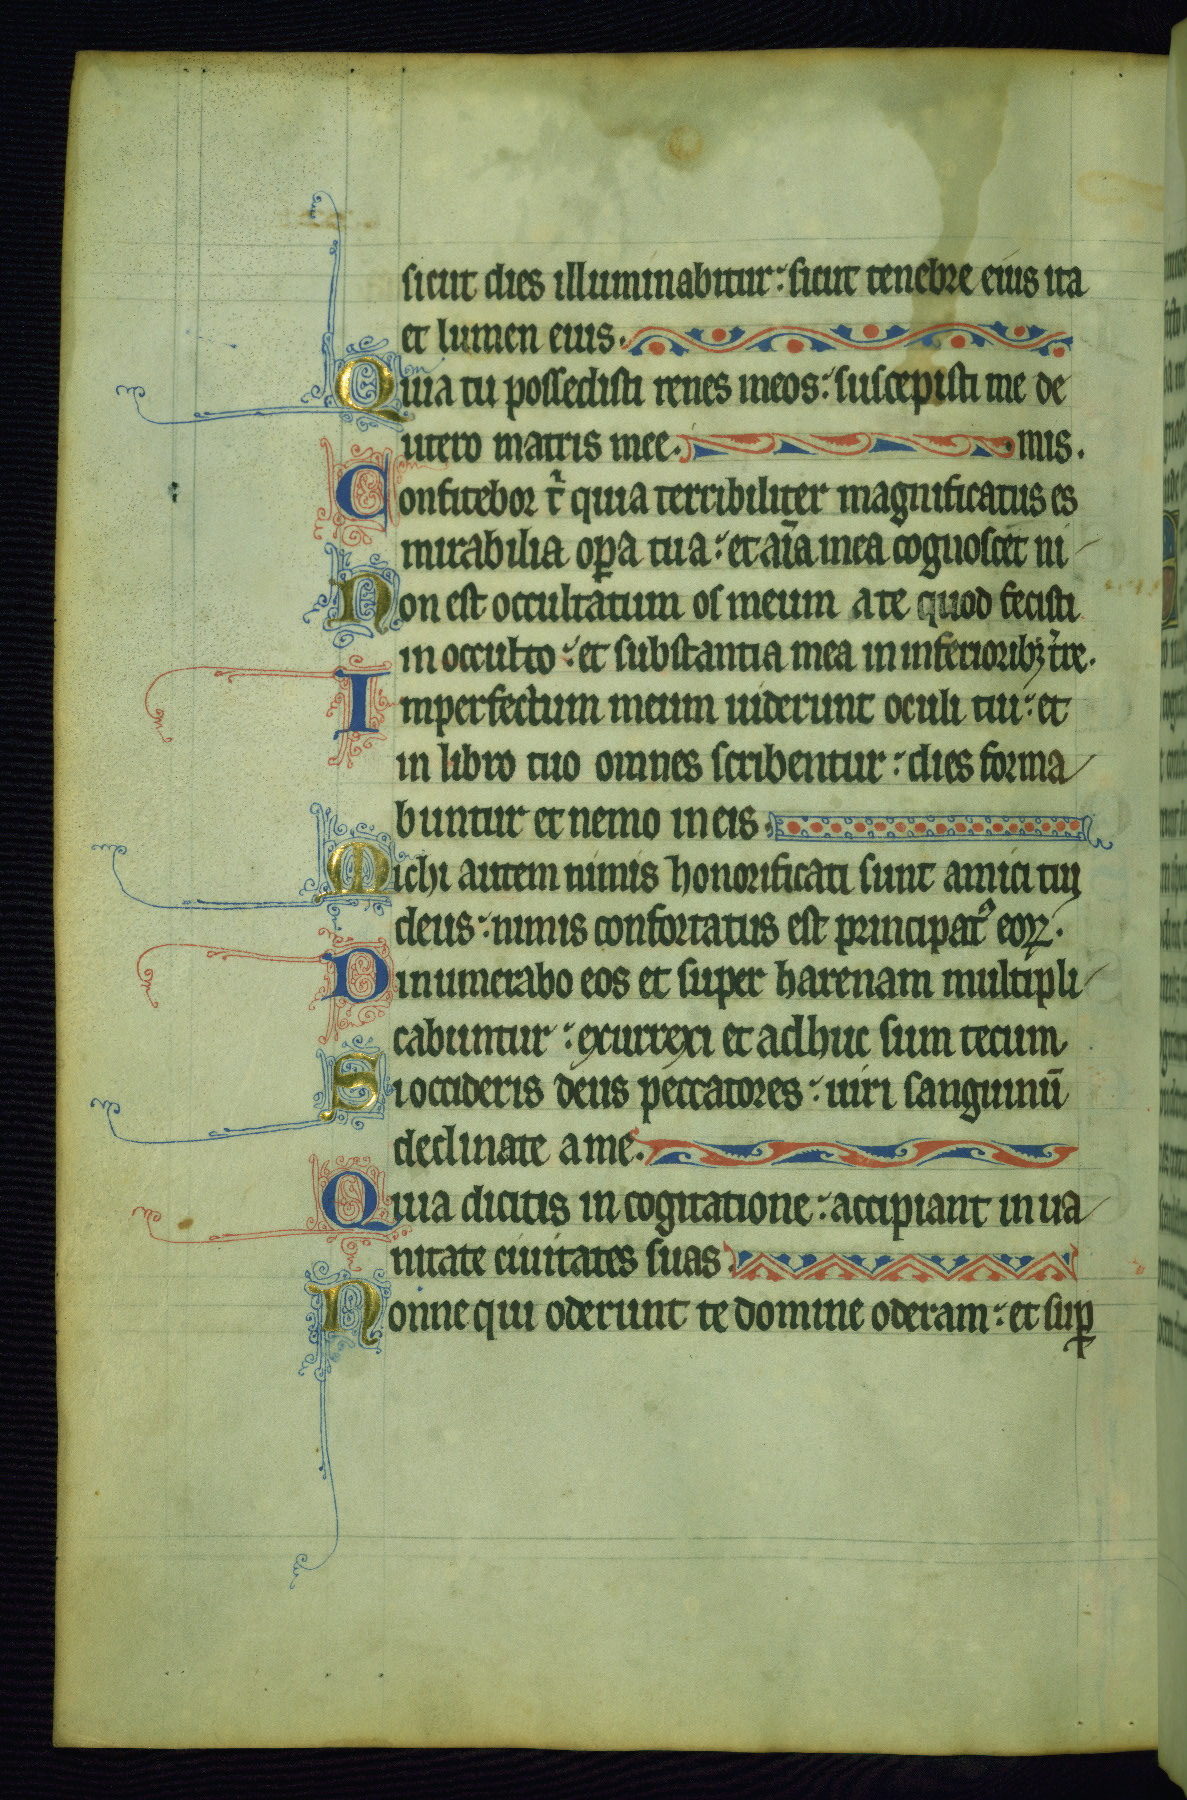 sicut dies illuminabitur: sicut tenebre eius ita
et lumen eius.
Quia tu possedisti renes meos: suscepisti me de
utero matris mee. mis.
Confitebor t̄ quia terribiliter magnificatus es
mirabilia oꝑa tua: et aīa mea cognoscet ni
Non est occultatum os meum a te quod fecisti
in occulto: et substantia mea in inferioribꝫ t̄re.
Imperfectum meum uiderunt oculi tui: et
in libro tuo omnes scribentur: dies forma
buntur et nemo in eis.
Michi autem nimis honorificati sunt amici tui
deus: nimis confortatus est principatꝰ eoꝝ.
Dinumerabo eos et super harenam multipli
cabuntur: exurrexi et adhuc sum tecum
Si occideris deus peccatores: uiri sanguinū
declinate a me.
Quia dicitis in cogitatione: accipiant in ua
nitate ciuitates suas.
Nonne qui oderunt te domine oderam: et suꝑ